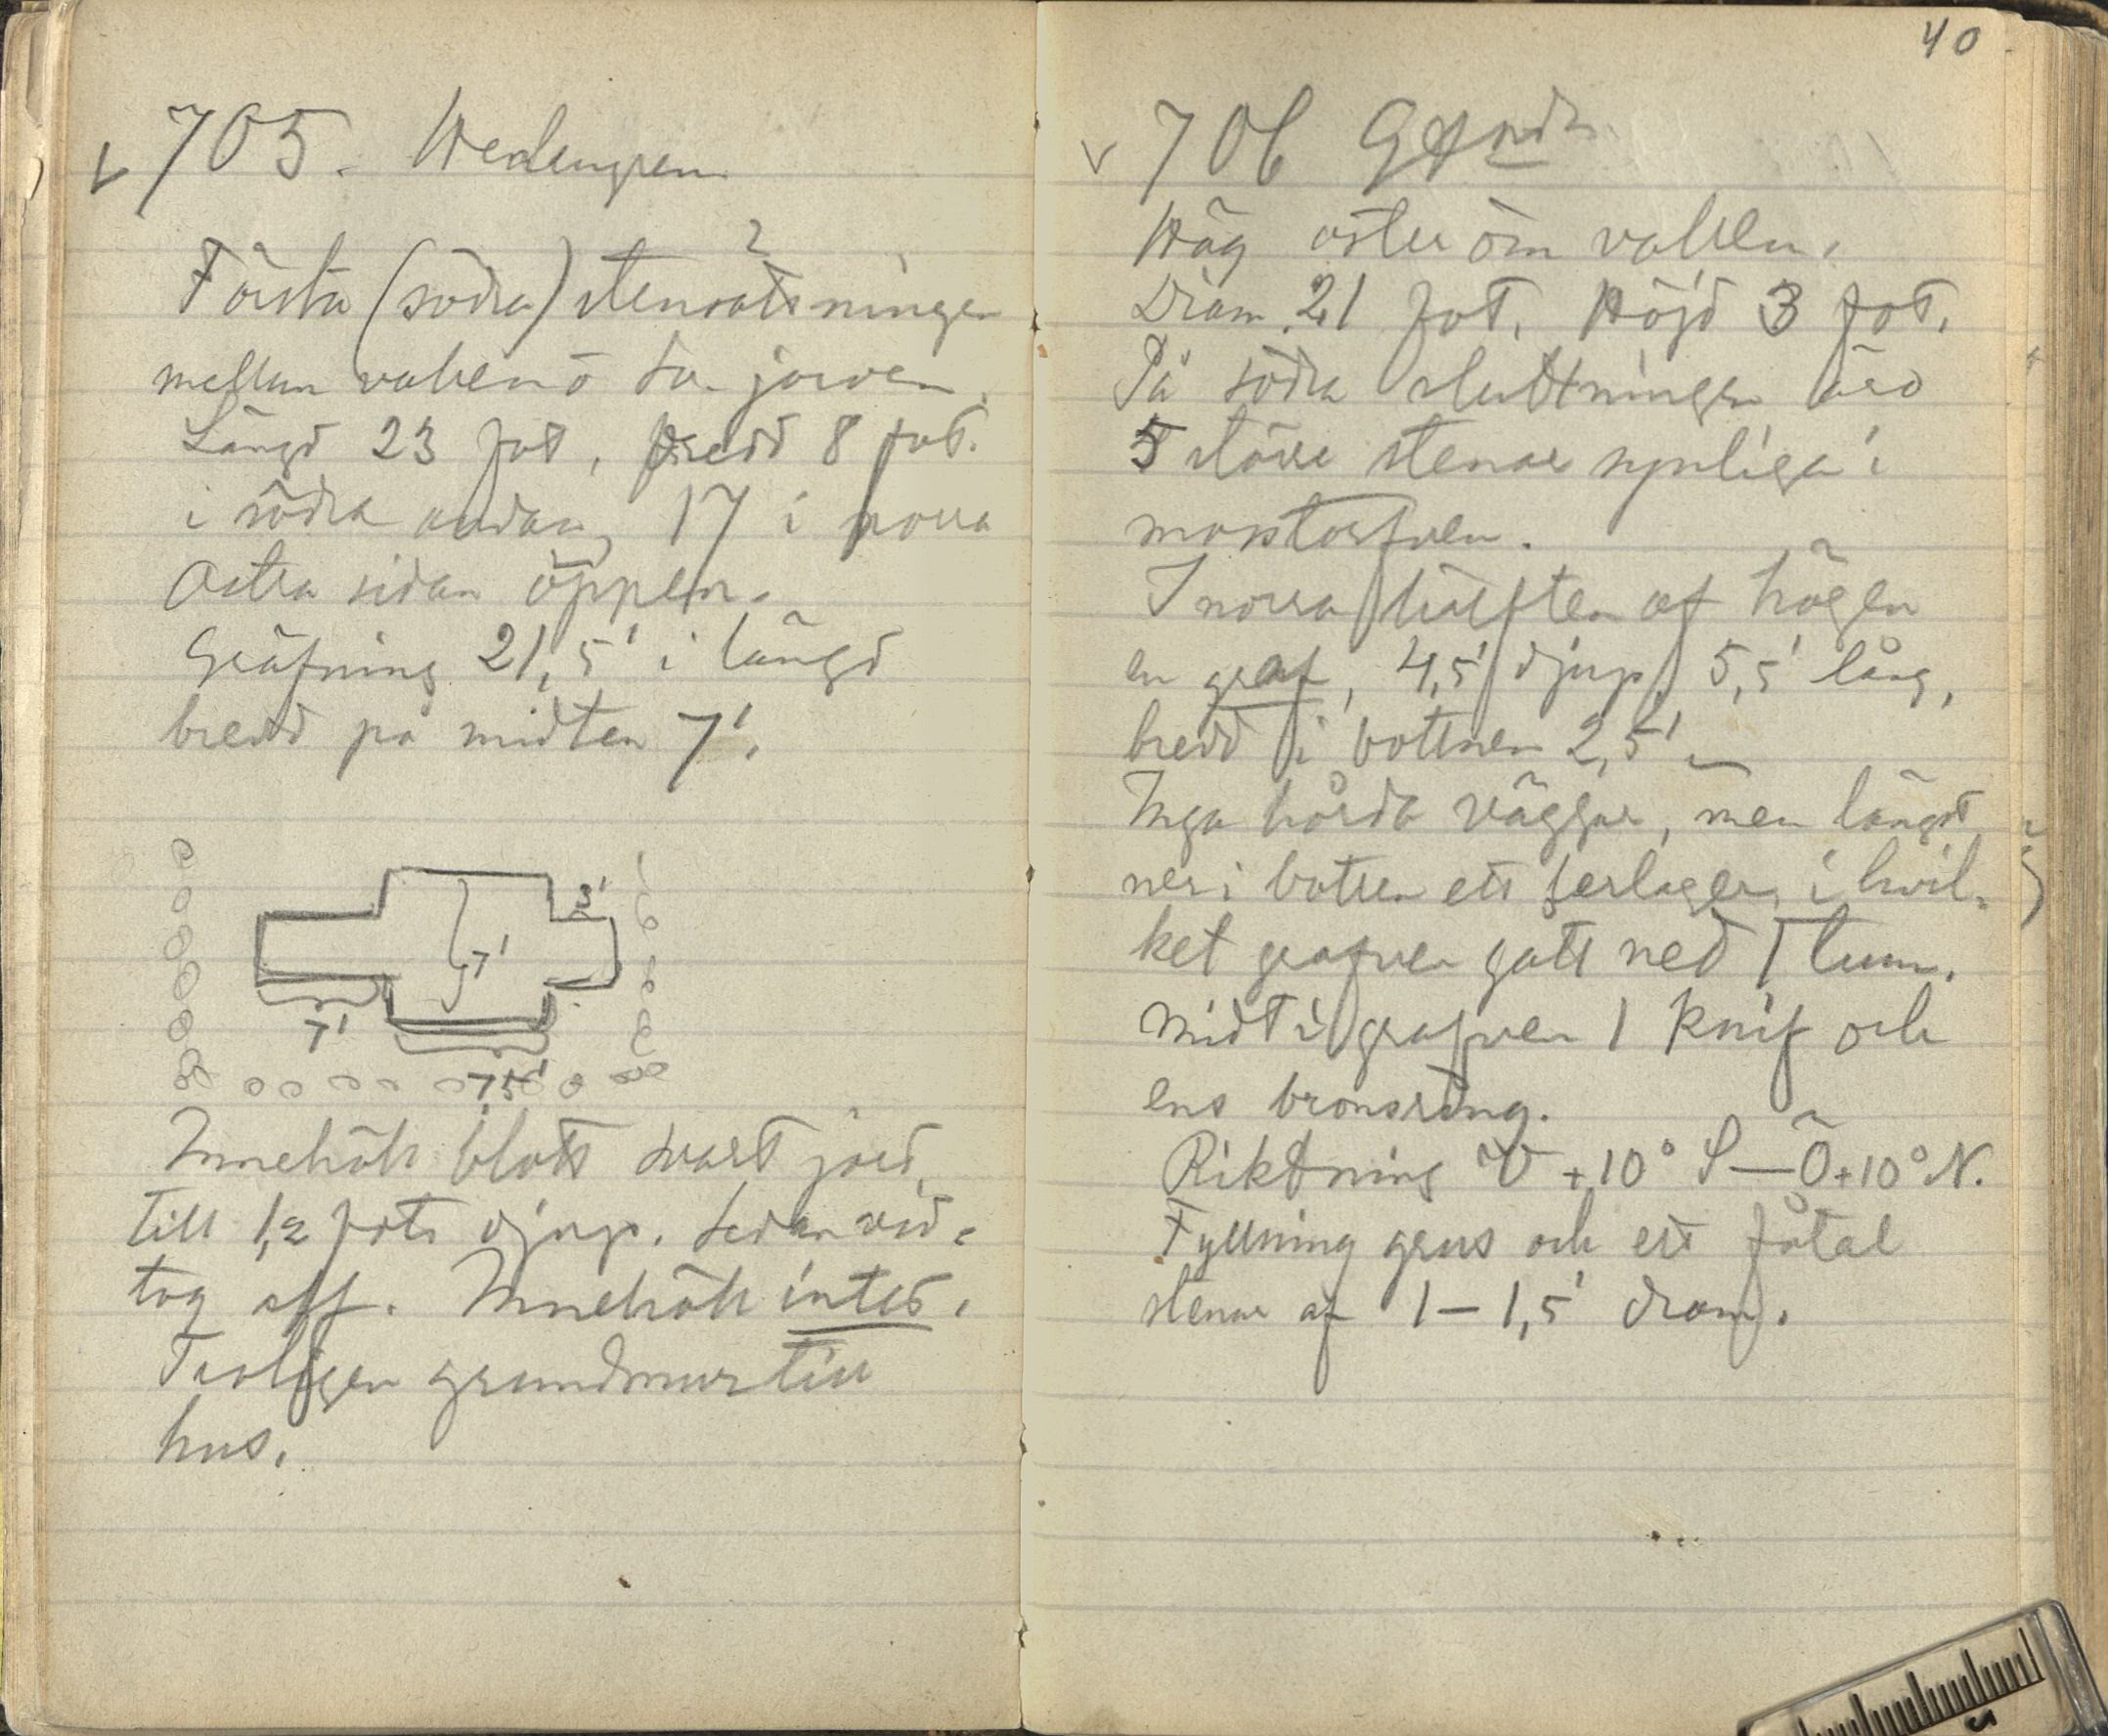 705.
Första (södra) stensättningen
mellan vallen o. sv. jorden
Längd 23 fot, bredd 8 fot.
i södra ändan, 17 i norra
Östra sidan öppen.
Gräfning 21,5' i längd
bredd på midten 7'.
3'
7'
7'
7,5'
Innehöll blott svart jord
till 1,2 fots djup. Sedan vid-
tog alf. Innehöll intet.
Troligen grundmur till
hus.
40
706
Hög öster om vallen.
Diam. 21 fot. Höjd 3 fot.
På södra sluttningen äro
5 större stenar synliga i
mosstorfven.
I norra hälften af högen
en graf, 4,5' djup, 5,5' lång,
bredd i bottnen 2,5'
Inga hårda väggar, men längst
ner i botten ett lerlager, i hvil-
ket grafven gått ned 1 tum.
Midt i grafven 1 knif och
ens bronsring.
Riktning V + 10° S — Ö + 10° N.
Fyllning grus och ett fåtal
stenar af 1 – 1,5' diam.